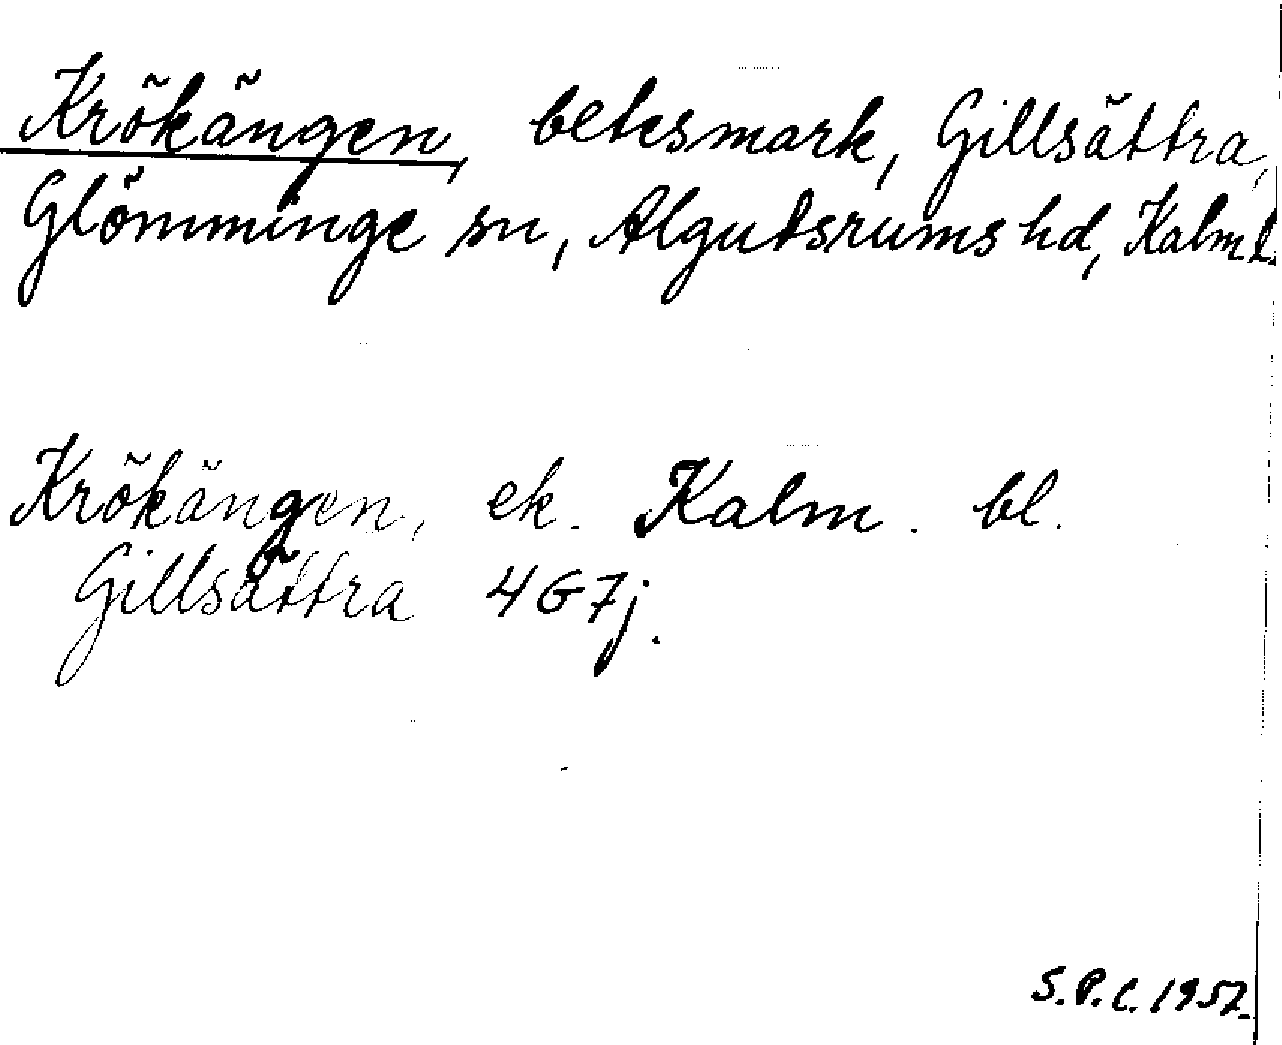 Krökängen, betesmark, Gillsättra,
Glömminge sn, Algutsrums hd, Kalm. l.
Krökängen, ek. Kalm. bl.
Gillsättra 4G7j.
S.P.C. 1957.